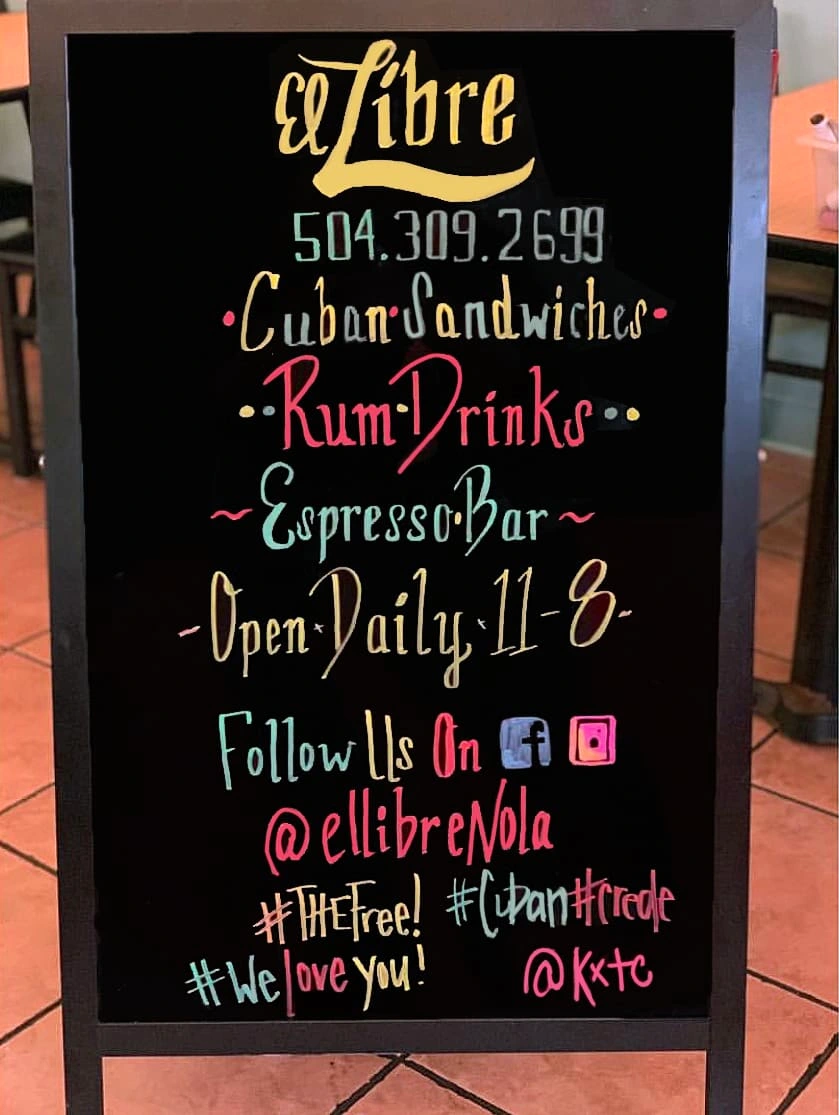 El Libre
504.309.2699
•Cuban•Sandwiches•
••Rum•Drinks••
~Espresso•Bar~
-Open·Daily·11-8-
Follow Us On f
@ellibreNola
#THEFree! #Cuban#creole
#We love you! @Kxtc